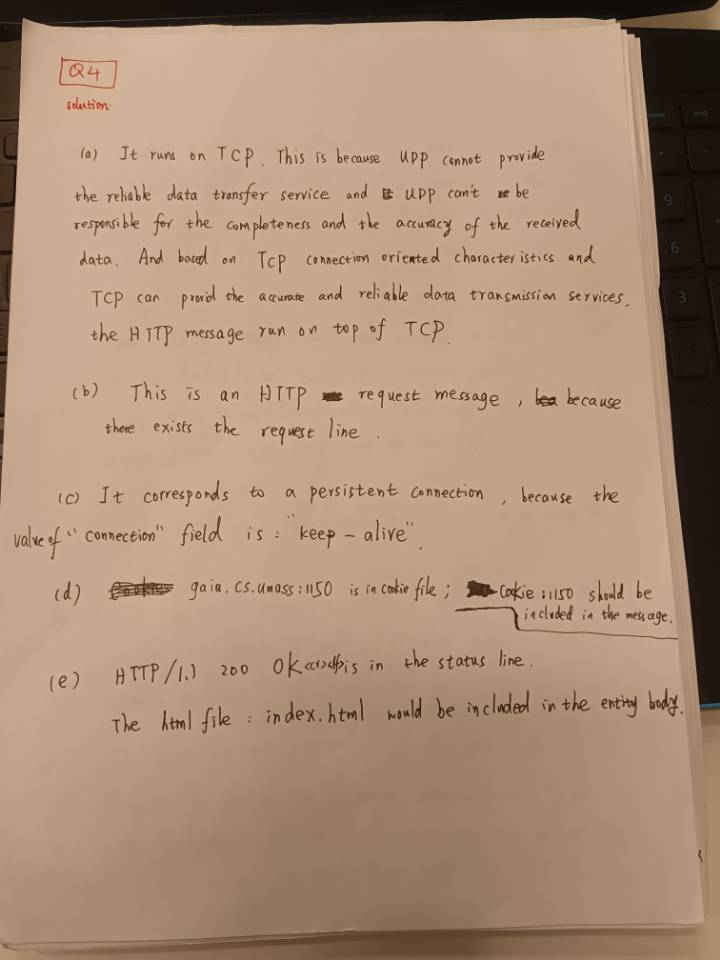 Q4
solution:
(a) It runs on TCP. This is because UPP cannot provide
the reliable data transfer service and UPP can't be
responsible for the completeness and the accuracy of the received
data. And based on TCP connection oriented characteristics and
TCP can provid the accurate and reliable data transmission services,
the HTTP message run on top of TCP.
(b) This is an HTTP request message, because
there exists the request line.
(c) It corresponds to a persistent connection, because the
value of "connection" field is: "keep-alive".
(d) gaia.cs.umass:1150 is in cookie file; Cookie:1150 should be
included in the message.
(e) HTTP/1.1 200 OK<cr><lf> is in the status line.
The html file: index.html would be included in the entity body.
end
9
6
3